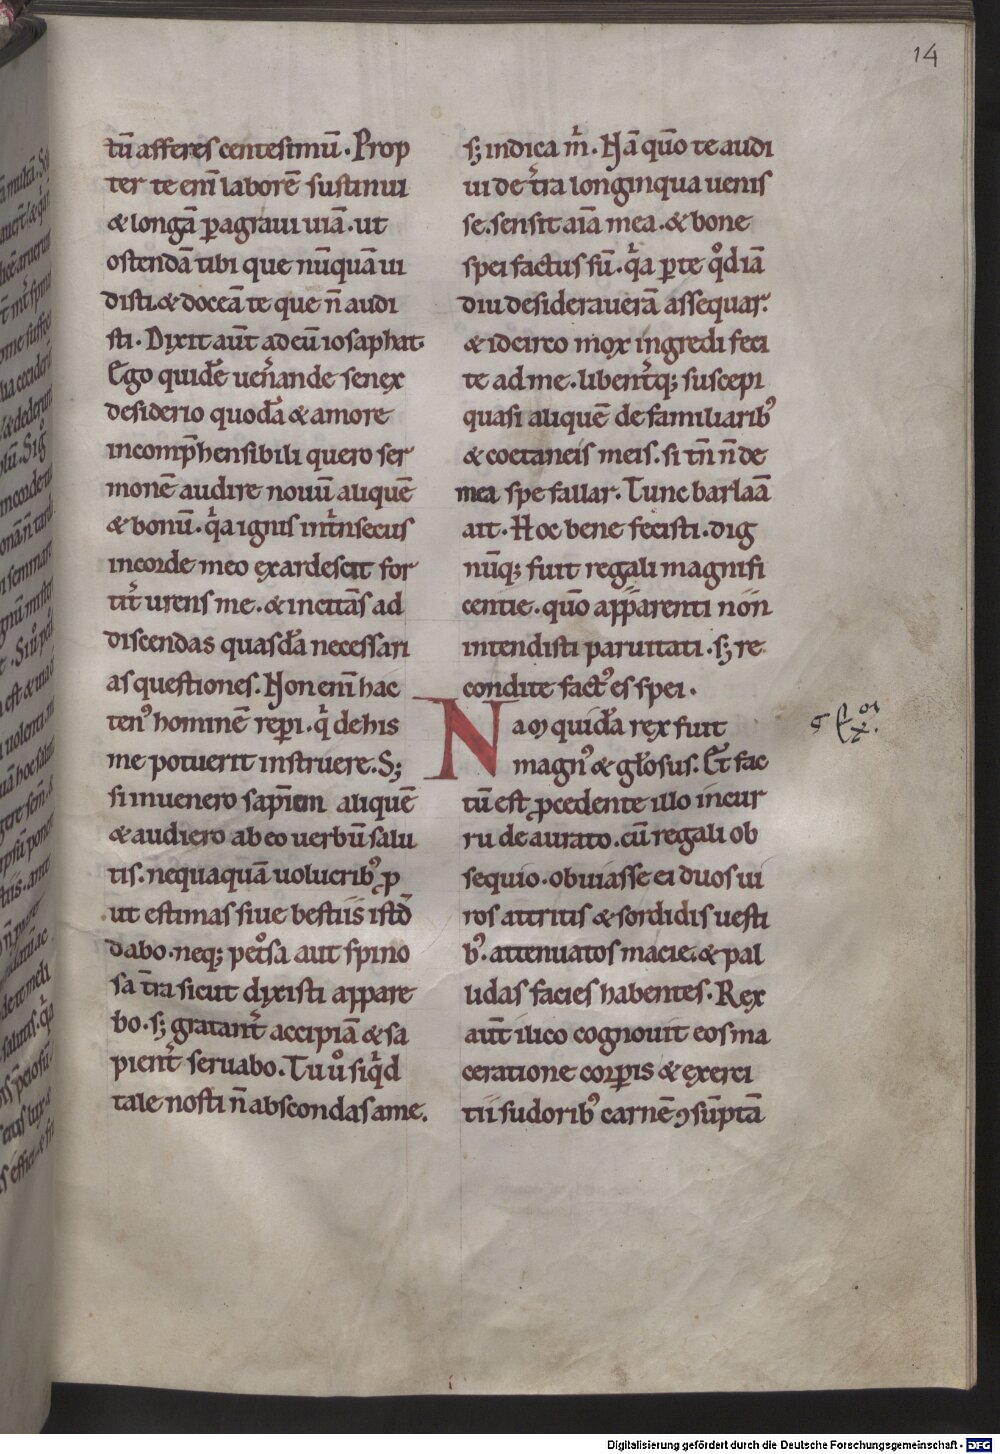 14
tū afferes centesimū. Prop
ter te eni laborē sustinui
& longā ꝑagraui uiā. ut
ostendā tibi que nūquā ui
disti & doceā te que n̄ audi
sti. Dixit aūt ad eū iosaphat.
Ego quidē uen̄ande senex
desiderio quodā & amore
incomp̄hensibili quero ser
monē audire nouū aliquē
& bonū. qͥa ignis int̄nsecus
in corde meo exardescit for
tit̄ urens me. & incitās ad
discendas quasdā necessari
as questiones. Non eni hac
tenꝰ hominē reperi. qͥ de his
me potuerit instruere. S;
si inuenero sapiēm aliquē
& audiero ab eo uerbū salu
tis. nequaquā uolucribꝰ ꝓ
ut estimas siue bestiis istđ
dabo. neq; petͦsa aut spino
sa t̄ra sicut dixisti appare
bo. s; gratant̄ accipiā & sa
pient̄ seruabo. Tu uͦ siqͥd
tale nosti n̄ abscondas a me.
s; indica m̄. Nā quō te audi
ui de t̄ra longinqua uenis
se. sensit aīa mea. & bone
spei factus sū. qͥa ꝑ te qͦdiā
diu desideraueram assequar.
& idcirco mox ingredi feci
te ad me. libent̄q; suscepi
quasi aliquē de familiaribꝰ
& coetaneis meis. si tn̄ n̄ de
mea spe fallar. Tunc barlaā
ait. Hoc bene fecisti. dig
nūq; fuit regali magnifi
centie. quō apparenti non
intendisti paruitati. s; re
condite factꝰ es spei.
Nam quidā rex fuit
magnꝰ & gl̄osus. Et fac
tū est ꝓcedente illo in cur
ru deaurato. cū regali ob
sequio. obuiasse ei duos ui
ros attritis & sordidis uesti
bꝰ. attenuatos macie. & pal
lidas facies habentes. Rex
aūt ilico cognouit eos ma
ceratione corꝑis & exerci
tii sudoribꝰ carnē ꝯsūptā
Digitalisierung gefördert durch die Deutsche Forschungsgemeinschaft - DFG